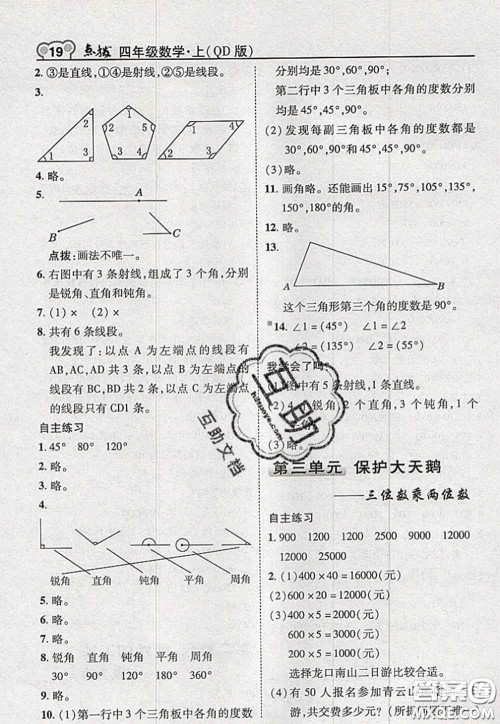 19 点拨 四年级数学·上(QD版)
2. ③是直线,①④是射线,②⑤是线段。
3.
1 2 3
1 2 3 4 5
1 2 3 4
4. 略。
5.
A
B C
点拨：画法不唯一。
6. 右图中有 3 条射线,组成了 3 个角,分别
是锐角、直角和钝角。
7. (1) × (2) ×
8. 共有 6 条线段。
我发现了:以点 A 为左端点的线段有
AB、AC、AD3 条,以点 B 为左端点的线
段有 BC、BD2 条,以点 C 为左端点的线
段只有 CD1 条。
自主练习
1. 45° 80° 120°
2. 略。
3. 略。
4.
锐角 直角 钝角 平角 周角
5. 略。
6. 略。
7. 略。
8. 锐角 直角 钝角 平角 周角
30° 90° 120° 180° 360°
9. 略。
10. (1)第一行中 3 个三角板中各角的度数
分别均为 30°,60°,90°;
第二行中 3 个三角板中各角的度数
均为 45°,45°,90°。
(2) 发现每副三角板中各角的度数都是
30°,60°,90°和 45°,45°,90°。
(3)略。
11. 画角略。还能画出 15°,75°,105°,135°,
150°,165°的角。
12. 略。
13.
A B
这个三角形第三个角的度数是 90°。
*14. ∠1=(45°) ∠1=(55°)
∠2=(135°) ∠2=(35°)
我学会了吗
图中有 1 条射线,1 条直线。
(2) 4 个锐角,3 个直角,3 个钝角,1 个
(3)略。
第三单元 保护大天鹅
——三位数乘两位数
自主练习
1. 900 1200 1200 2500 9000 12000
12000 25000
2. (1)400×40=16000(元)
(2)600×20=12000(元)
(3)400×5=2000(元)
600×5=3000(元)
200×5=1000(元)
选择龙口南山二日游比较合适。
(4)有 50 人报名参加青云山
游,共交费多少元?
互助
hzxunye.com
互助文档
答案圈
MXQE.COM